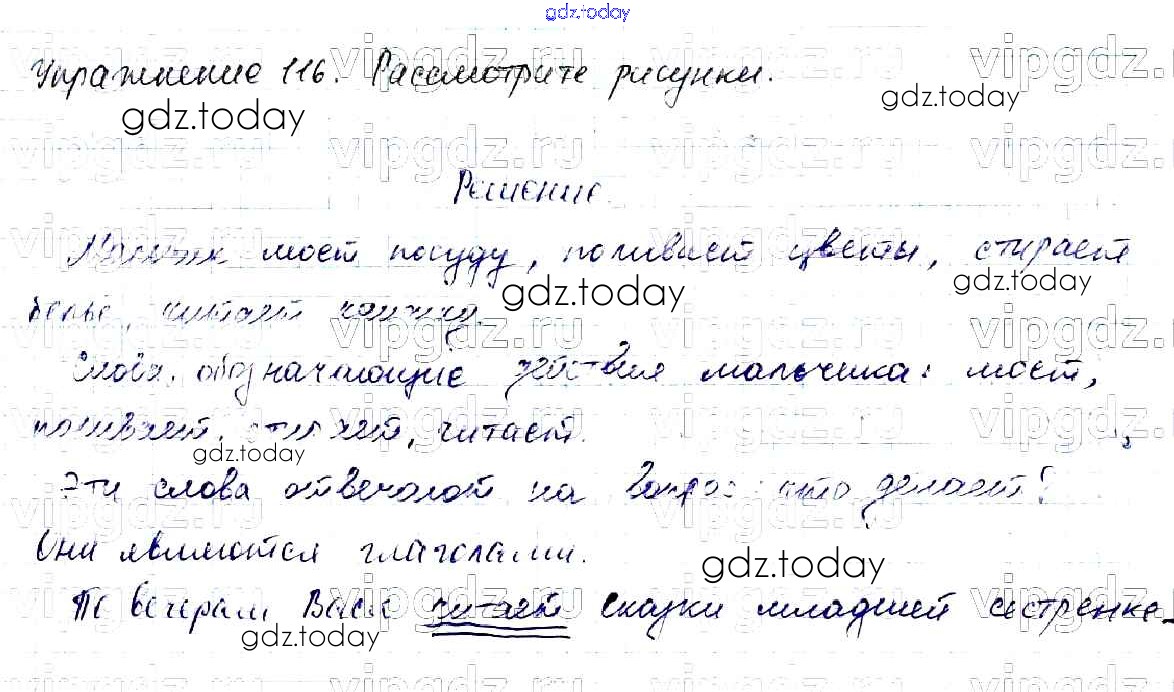 gdz.today
Упражнение 116. Рассмотрите рисунки.
gdz.today
gdz.today
Решение.
Мальчик моет посуду, поливает цветы, стирает
gdz.today
gdz.today
белье, читает книжку.
Слова, обозначающие действия мальчика: моет,
поливает, стирает, читает.
gdz.today
Эти слова отвечают на вопрос: что делает?
Они являются глаголами.
gdz.today
По вечерам Вася читает сказки младшей сестренке.
gdz.today
vipgdz.ru